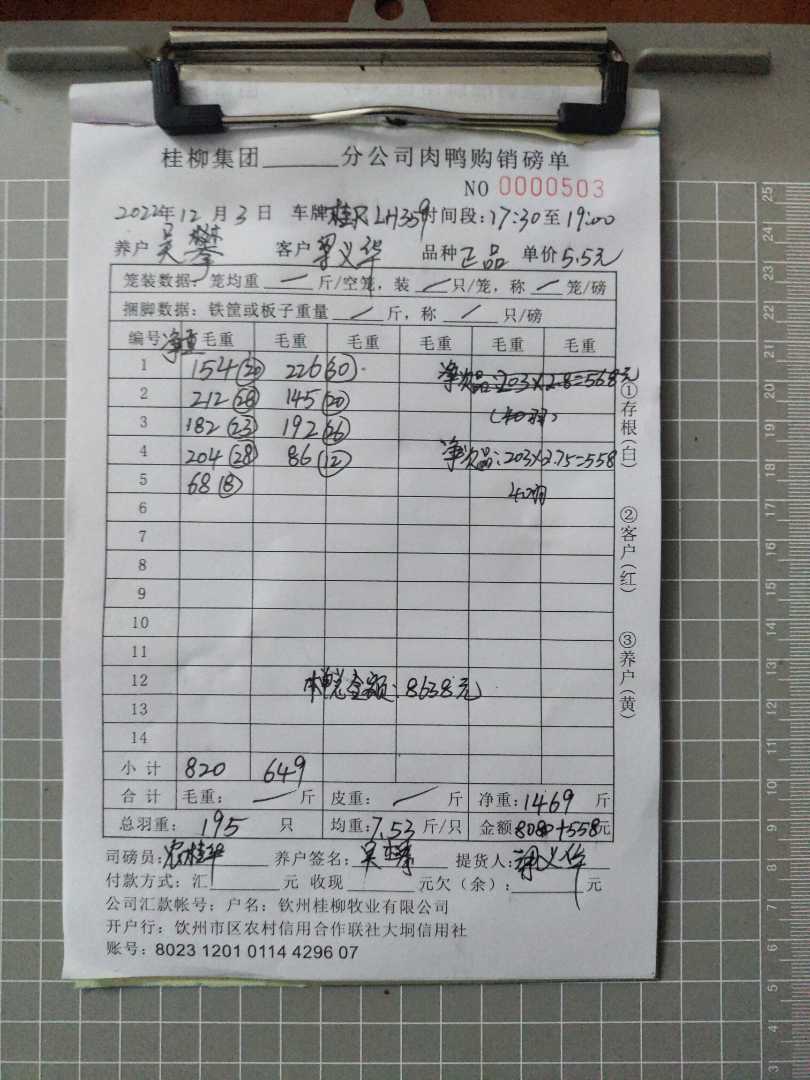 桂柳集团______分公司肉鸭购销磅单
NO 0000503
2022年12月3日 车牌桂R LH359时间段:17:30至19:00
养户吴攀 客户梁义华 品种正品 单价5.5元
笼装数据:笼均重 — 斤/空笼,装 — 只/笼,称 — 笼/磅
捆脚数据:铁筐或板子重量 / 斤,称 / 只/磅
编号 净重 毛重 毛重 毛重 毛重 毛重 毛重
1 154(20) 226(30) 净次品:203×2.8=568元
2 212(28) 145(20) (40羽)
3 182(23) 192(26)
4 204(28) 86(12) 净次品:203×2.75=558
5 68(8) 40羽
6
7
8
9
10
11
12 本单总金额:8638元
13
14
小计 820 649
合计 毛重: — 斤 皮重: — 斤 净重:1469 斤
总羽重: 195 只 均重:7.53斤/只 金额8080+558元
司磅员:农桂华 养户签名:吴攀 提货人:梁义华
付款方式:汇______元 收现______元欠(余):______元
公司汇款帐号:户名:钦州桂柳牧业有限公司
开户行:钦州市区农村信用合作联社大垌信用社
账号:8023 1201 0114 4296 07
①存根(白)
②客户(红)
③养户(黄)
25
24
23
22
21
20
19
18
17
16
15
14
13
12
11
10
9
8
7
6
5
4
3